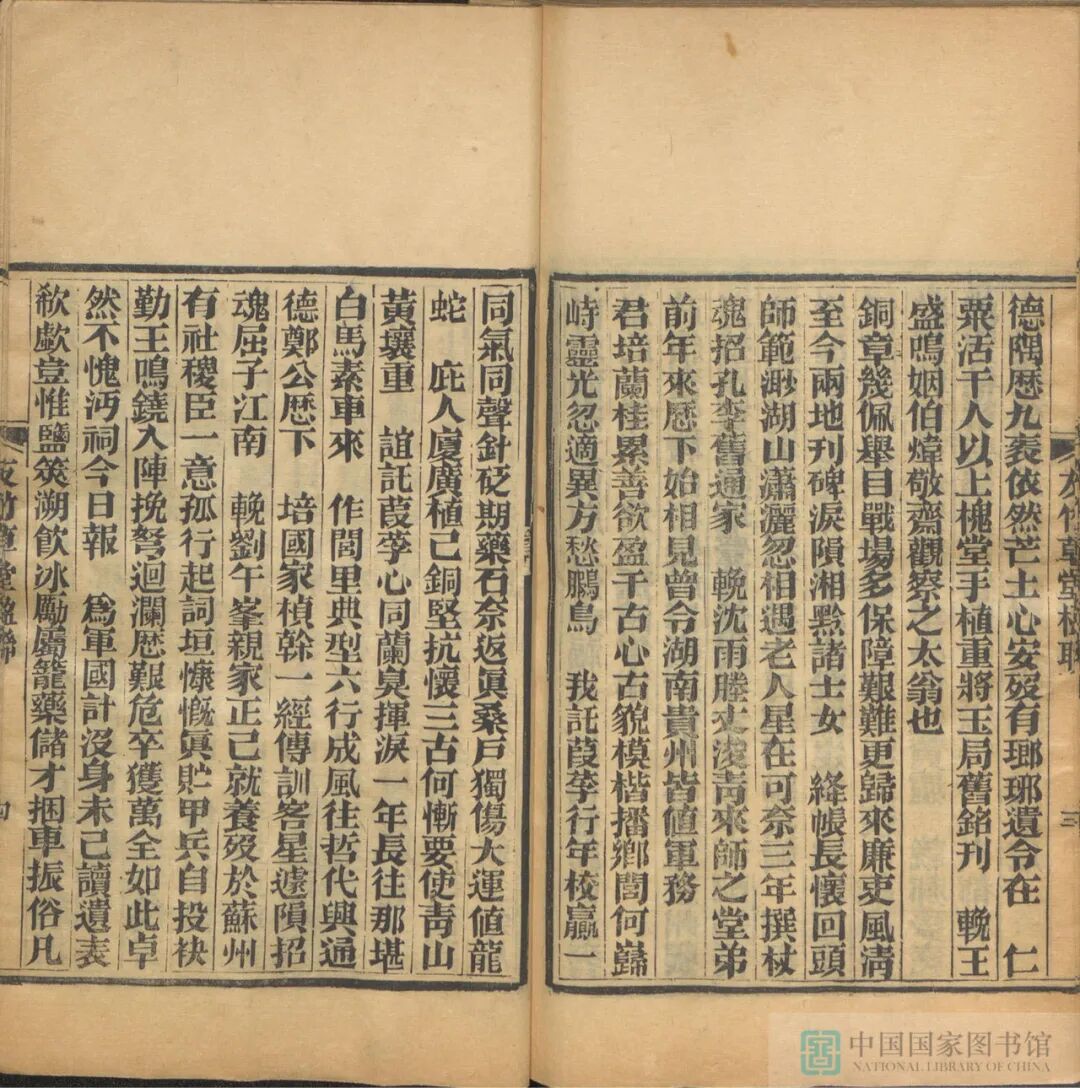 德隅歷九袠依然芒土心安歿有瑯琊遺令在　仁
粟活千人以上槐堂手植重將玉局舊銘刊　輓王
盛鳴姻伯煒敬齋觀察之太翁也
銅章幾佩舉目戰場多保障艱難更歸來廉吏風淸
至今兩地刊碑淚隕湘黔諸士女　絳帳長懷回頭
師範渺湖山瀟灑忽相遇老人星在可奈三年撰杖
魂招孔李舊通家　輓沈雨塍丈淩靑來師之堂弟
前年來歷下始相見曾令湖南貴州皆値軍務
君培蘭桂累善欲盈千古心古貌模楷播鄕閭何巋
峙靈光忽適異方愁鵩鳥　我託葭莩行年校贏一
三
同氣同聲針砭期藥石奈返眞桑戶獨傷大運値龍
蛇　庇人廈廣植己銅堅抗懷三古何慚要使靑山
黃壤重　誼託葭莩心同蘭臭揮淚一年長往那堪
白馬素車來　作閭里典型六行成風往哲代興通
德鄭公歷下　培國家楨幹一經傳訓客星遽隕招
魂屈子江南　輓劉午峯親家正己就養歿於蘇州
有社稷臣一意孤行起詞垣慷慨眞貯甲兵自投袂
勤王鳴鐃入陣挽弩迴瀾歷艱危卒獲萬全如此卓
然不愧沔祠今日報　爲軍國計沒身未己讀遺表
欷歔豈惟鹽筴溯飮冰勵屬籠藥儲才捆車振俗凡
竹草堂楹聯
四
中国国家图书馆
NATIONAL LIBRARY OF CHINA